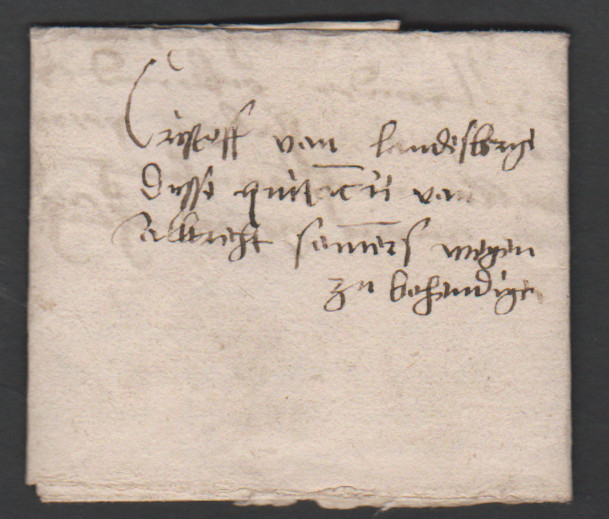 Cristoff van landesberge
Dysse quitācīi van
Albrecht som̄ers wegen
zu behendigen